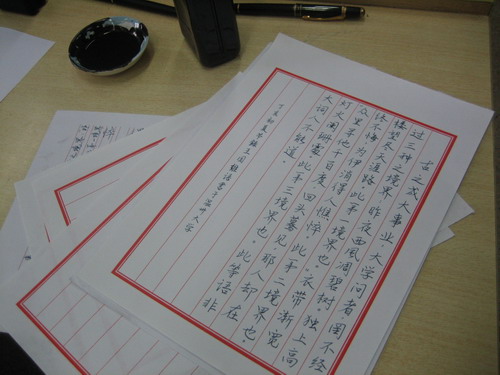 古之成大事业、大学问者,罔不经
过三种之境界。昨夜西風凋碧树。独上高
楼,望尽天涯路,此第一境界也。衣带渐宽
终不悔,为伊消得人憔悴,此第二境界也。
众里寻他千百度,回头蓦见,那人却在
灯火阑珊处,此第三境界也。此等语非
大词人不能道。
丁亥初夏节录王国维语书于苏州大学